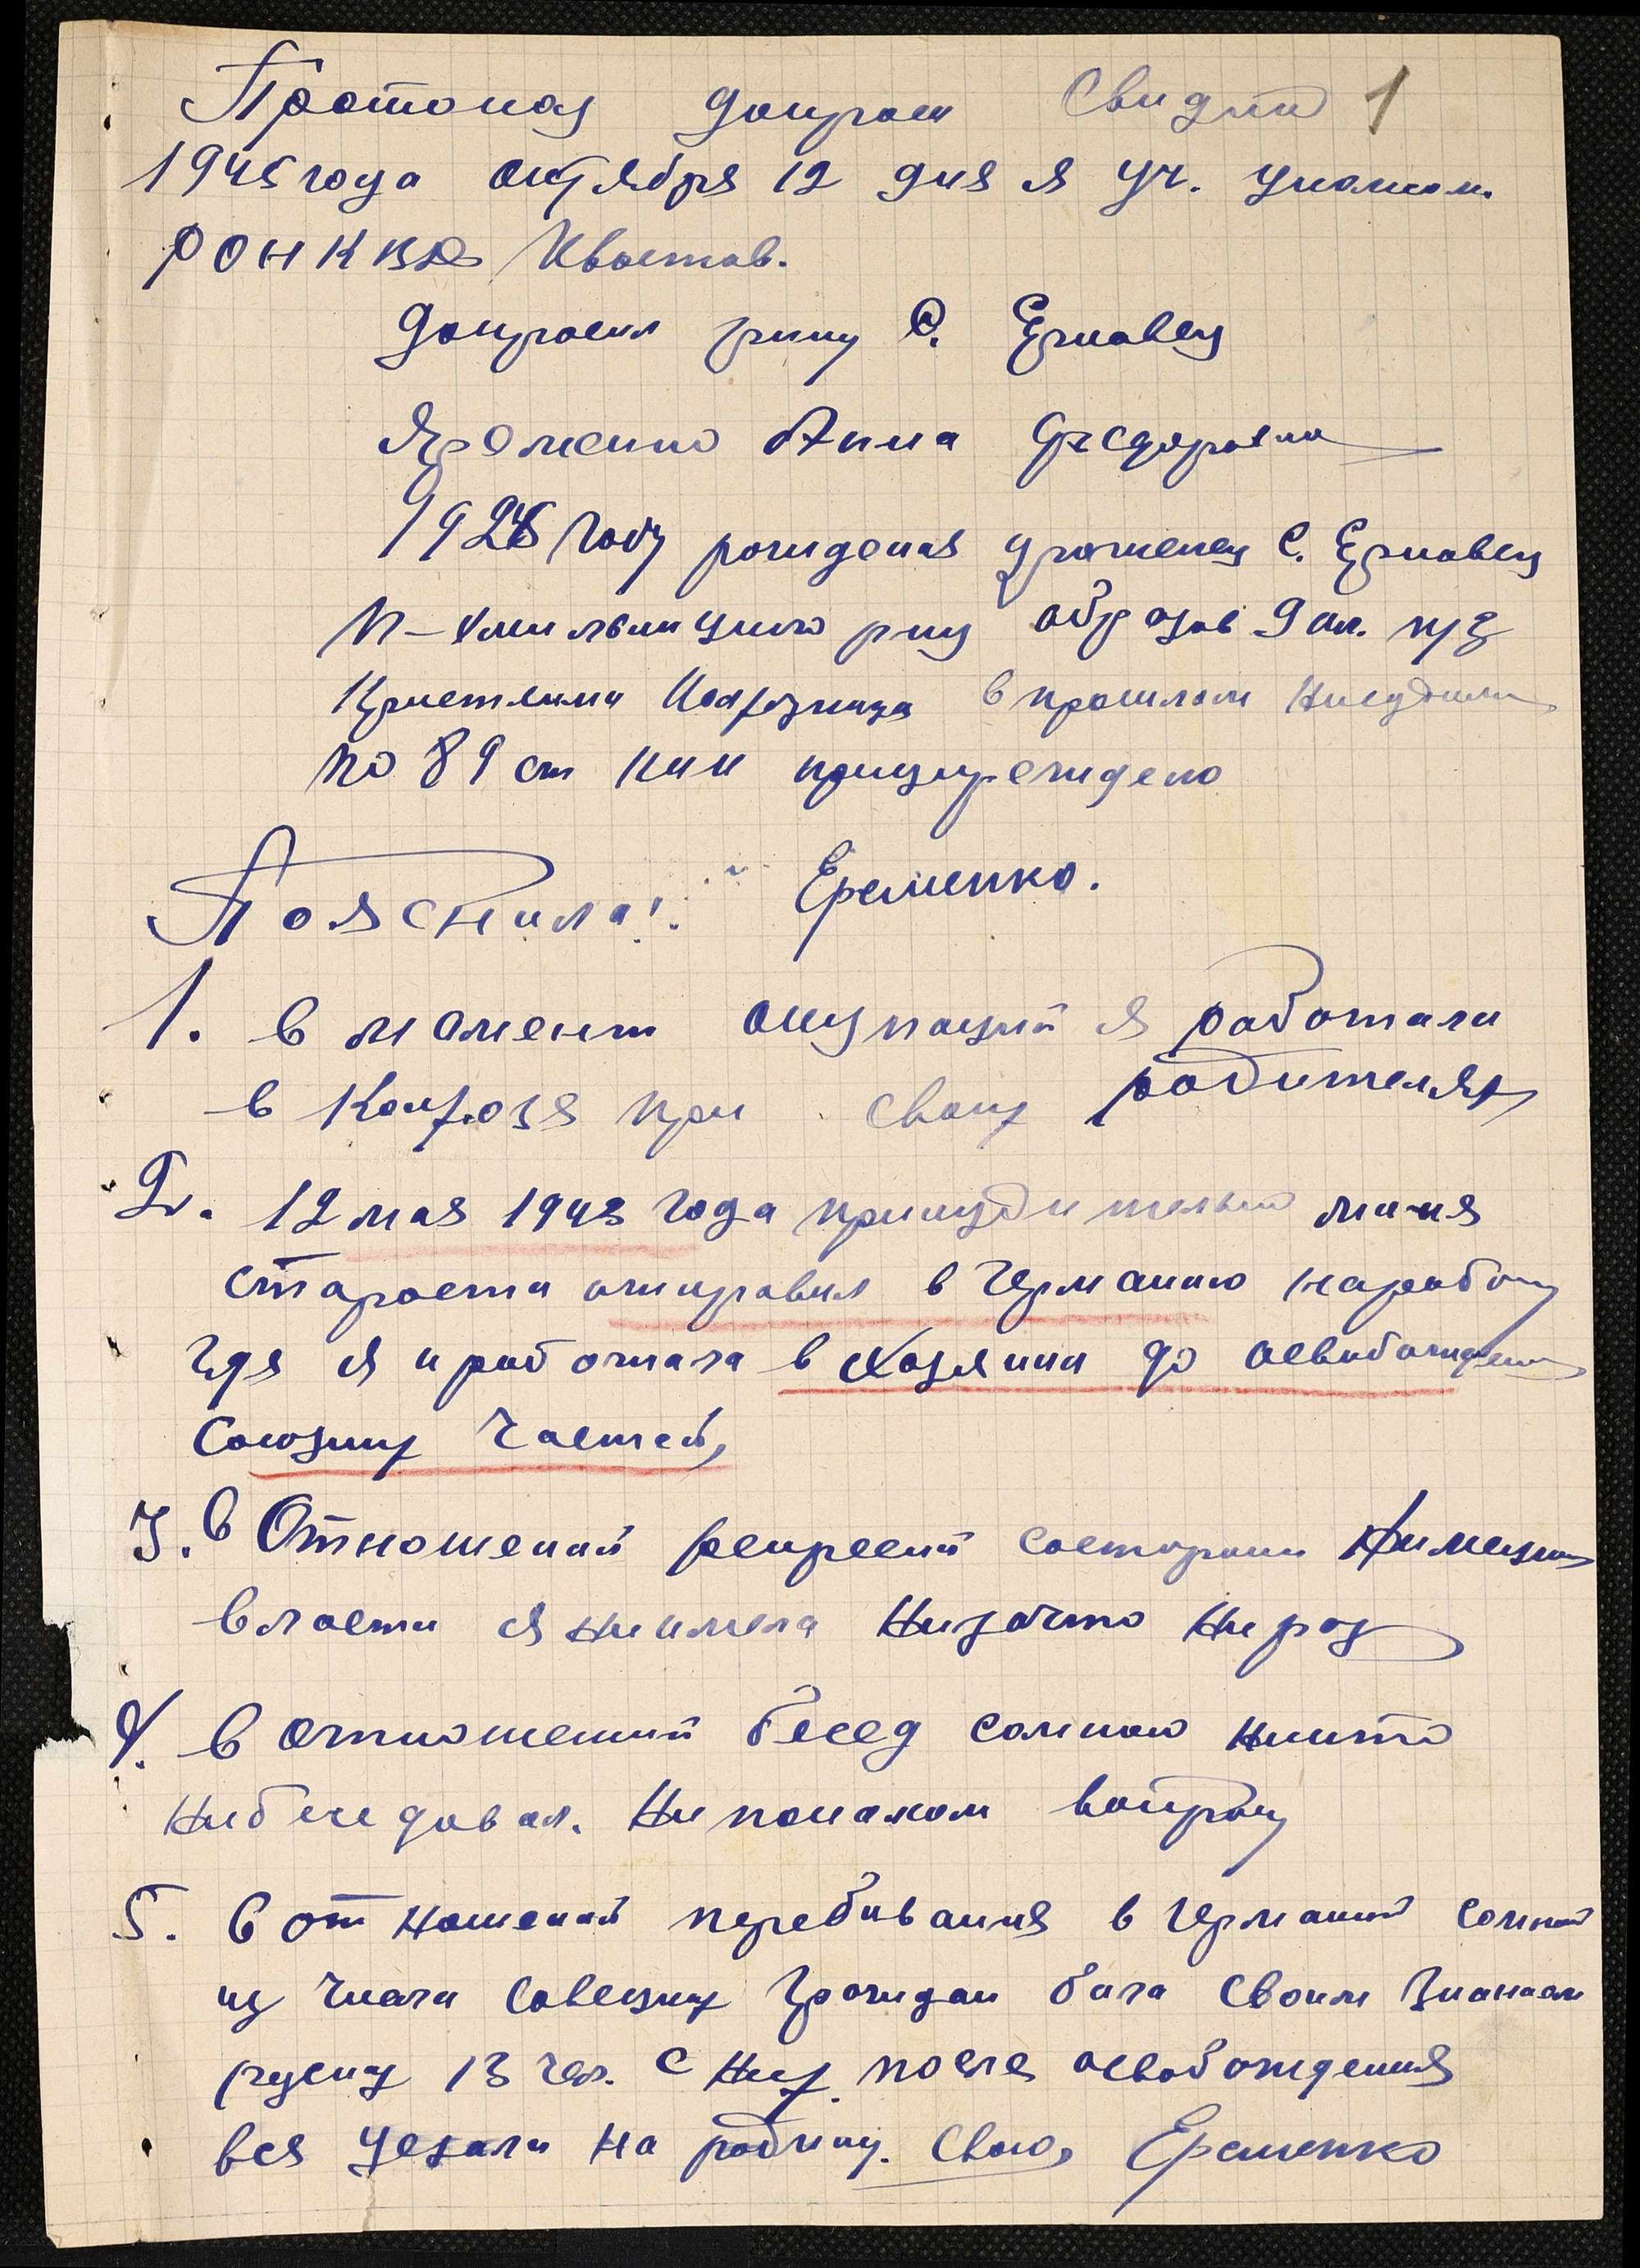 Протокол допроса Свидет 1
1945 года октября 12 дня я уч. уполном.
РО НКВД Хвостов.
допросил гр-ку С.
Яременко Анна Федоровна
1925 году рождения уроженец С.
П-Хмельницкого р-ну образов 9 кл. п/з
Крестянка Колхозница в прошлом Несудима
по 89 ст КПК предупреждено
Пояснила! Еременко.
1. в момент окупацый я работала
в Колхозя при своих родителях
2. 12 мая 1943 года принудительно миня
староста отправил в Германию наработу
Гдя я и работала в Хозяина до освобождения
Союзных Частей,
3. в Отношений репресий состороны Нимецких
власти я ниимела Низачто Ниразу
4. в отношений бесед сомною никто
Нибеседовал. Ни покаком вопросу
5. в отношений перебивания в Германий сомной
из числа Совецких Граждан била своим
13 чел. С них после освобождения
вся уехали на родину. Свою, Еременко